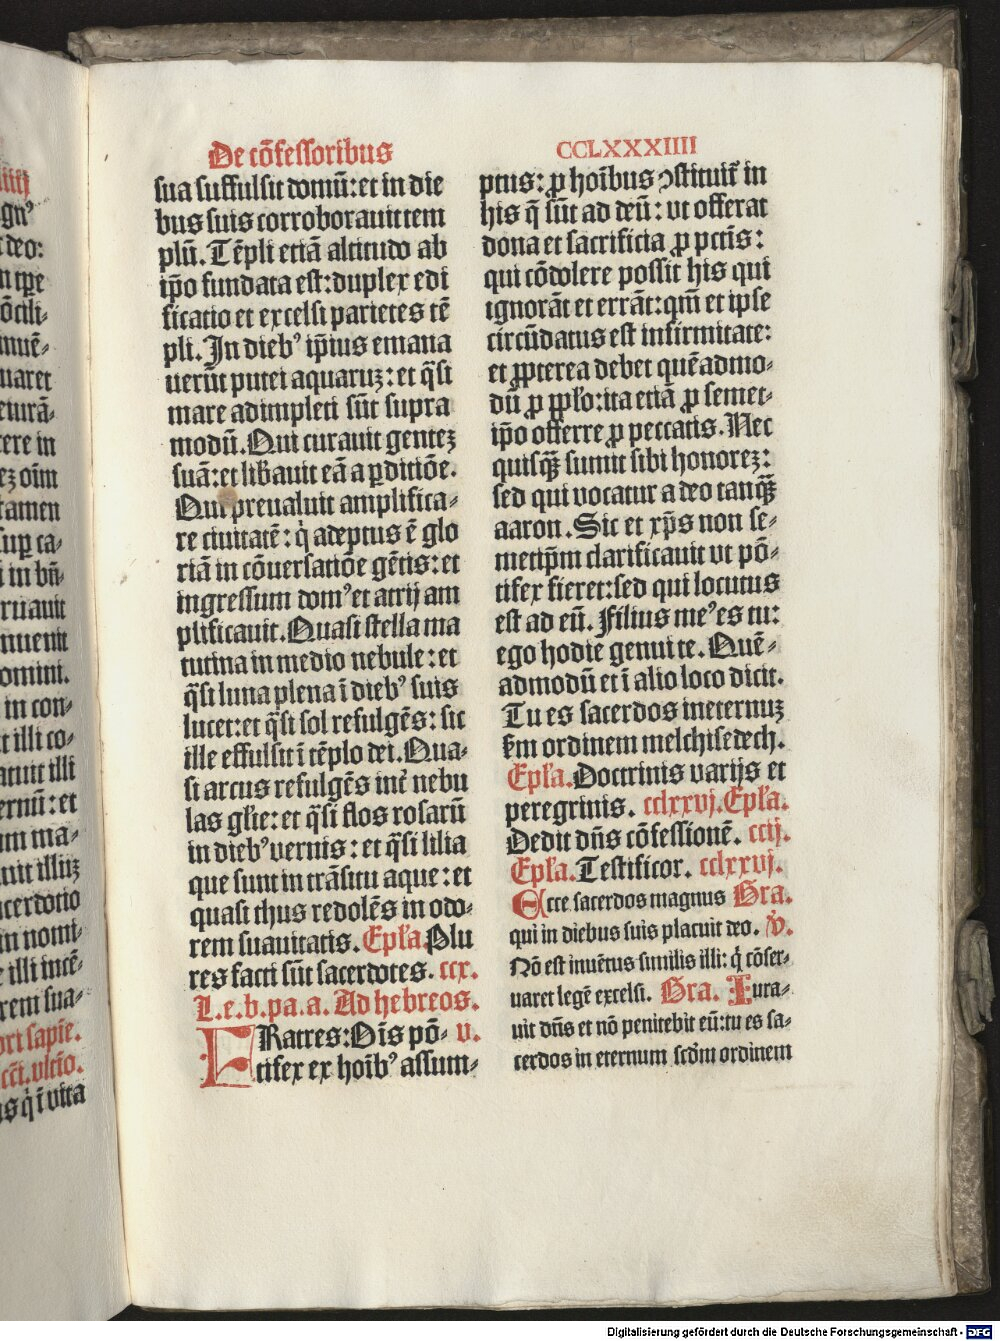 De cōfessoribus
CCLXXXIIII
sua suffulsit domū: et in die
bus suis corroborauit tem
plū. Tēpli etiā altitudo ab
ip̄o fundata est: duplex edi
ficatio et excelsi parietes tē
pli. In dieb⁹ ip̄ius emana
uerūt putei aquaruꝫ: et q̄si
mare adimpleti sūt supra
modū. Qui curauit genteꝫ
suā: et lib̄auit eā a ꝑditiōe.
Qui preualuit amplifica⸗
re ciuitatē: q̇ adeptus ē glo
riā in cōuersatiōe gētis: et
ingressum dom⁹ et atrij am
plificauit. Quasi stella ma
tutina in medio nebule: et
q̄si luna plena ī dieb⁹ suis
lucet: et q̄si sol refulgēs: sic
ille effulsit ī tēplo dei. Qua⸗
si arcus refulgēs int̄ nebu
las gl̄ie: et q̄si flos rosarū
in dieb⁹ vernis: et q̄si lilia
que sunt in trāsitu aque: et
quasi thus redolēs in odo⸗
rem suauitatis. Ep̄ła. Plu
res facti sūt sacerdotes. ccx.
L.e.b.pa.a. Ad hebreos.
FRatres: Oīs pō⸗ v.
tifex ex hoīb⁹ assum⸗
ptus: ꝓ hoībus ↄstituit̄ in
his q̄ sūt ad deū: vt offerat
dona et sacrificia ꝓ pctīs:
qui cōdolere possit his qui
ignorāt et errāt: qm̄ et ipse
circūdatus est infirmitate:
et ꝓpterea debet quēadmo⸗
dū ꝓ pp̄ło: ita etiā ꝓ semet⸗
ip̄o offerre ꝓ peccatis. Nec
quisꝙ̄ sumit sibi honoreꝫ:
sed qui vocatur a deo tanꝙ̄
aaron. Sic et xp̄s non se⸗
metip̄m clarificauit vt pō⸗
tifex fieret: sed qui locutus
est ad eū. Filius me⁹ es tu:
ego hodie genui te. Quē⸗
admodū et ī alio loco dicit.
Tu es sacerdos ineternuꝫ
scd̄m ordinem melchisedech.
Ep̄ła. Doctrinis varijs et
peregrinis. cclxxvj. Ep̄ła.
Dedit dn̄s cōfessionē. ccij.
Ep̄ła. Testificor. cclxxvj.
Ecce sacerdos magnus Gra.
qui in diebus suis placuit deo. V̇.
Nō est inuētus similis illi: q̇ cōser⸗
uaret legē excelsi. Gra. Iura⸗
uit dn̄s et nō penitebit eū: tu es sa⸗
cerdos in eternum scd̄m ordinem
Digitalisierung gefördert durch die Deutsche Forschungsgemeinschaft - DFG